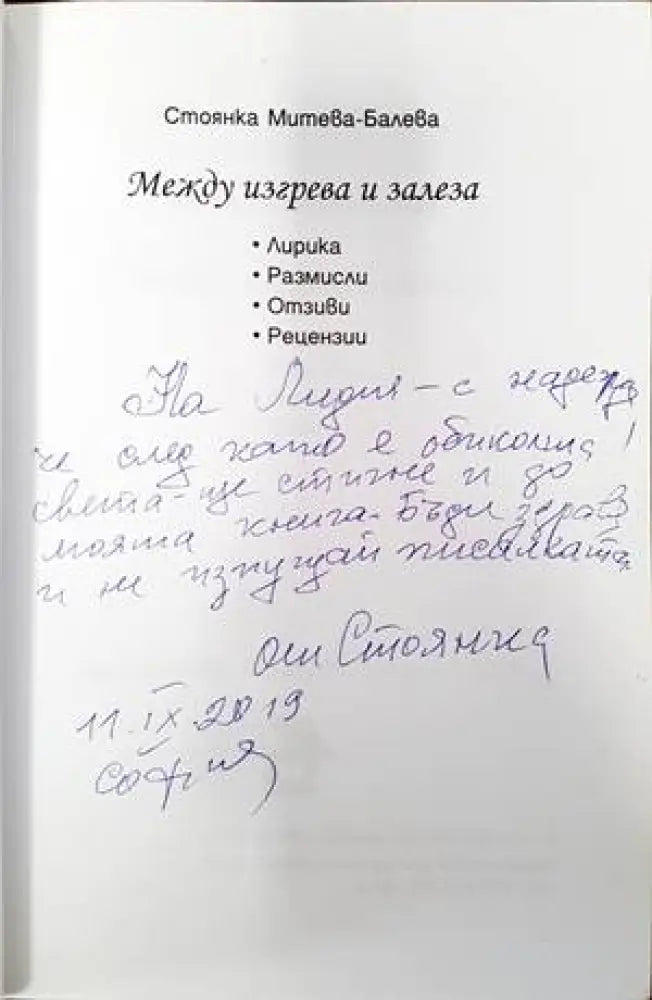 Стоянка Митева-Балева
Между изгрева и залеза
• Лирика
• Размисли
• Отзиви
• Рецензии
На Лидия – с надежда
че след като е обиколила
света – ще стигне и до
моята книга. Бъди здрава
и не изпущай писалката
от Стоянка
11.IX.2019
София